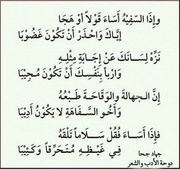 وَإِذَا السَّفِيْهُ أَسَاءَ قَوْلاً أَوْ هَجَا
إِيَّاكَ وَاحْذَرْ أَنْ تَكُوْنَ غَضُوْبَا
نَزِّهْ لِسَانَكَ عَنْ إِجَابَةِ مِثْلِهِ
وَارْبأْ بِنَفْسِكَ أَنْ تَكُوْنَ مُجِيْبَا
إِنَّ الجَهَالَةَ وَالوَقَاحَةَ طَبْعُهُ
وَأَخُو السَّفَاهَةِ لَا يَكُوْنُ أَدِيْبَا
فَإِذَا أَسَاءَ فَقُلْ سَلَاماً تَلْقَهُ
فِي غَيْظِهِ مُتَحَرِّقاً وَكَئِيْبَا
جهاد جحا
دوحة الأدب والشعر